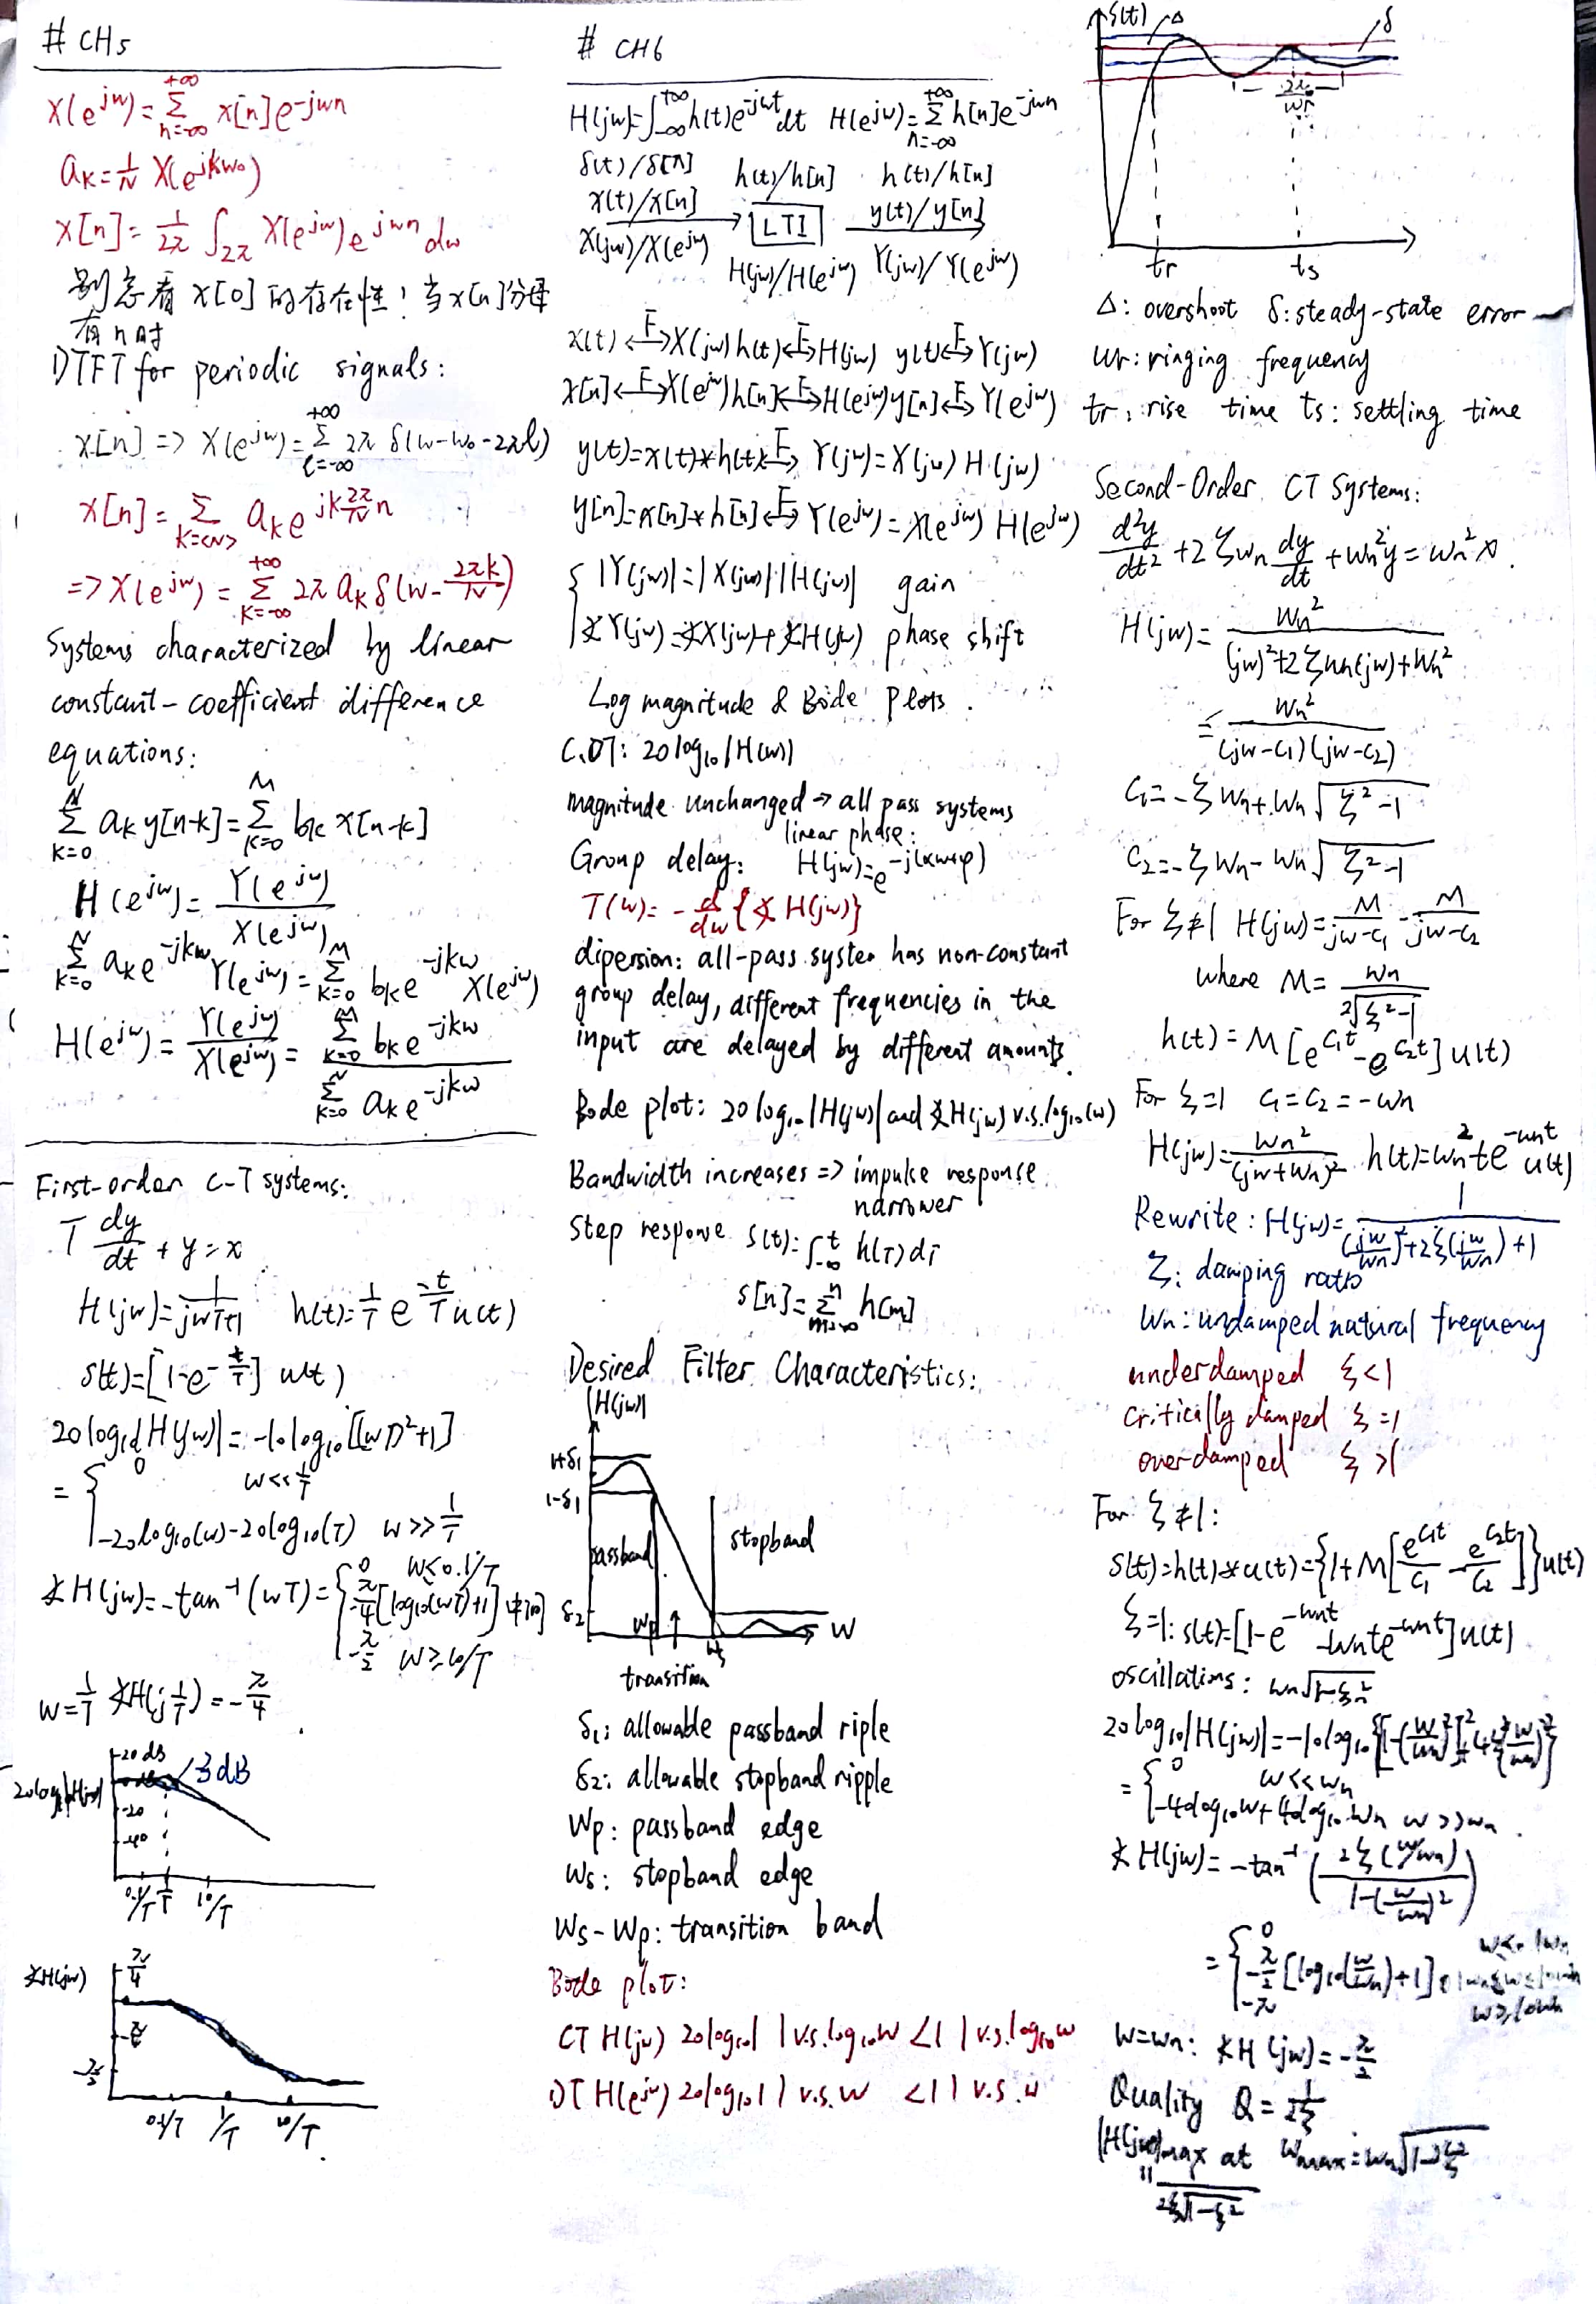 # CH5
X(e^{jw})=\sum_{n=-∞}^{+∞} x[n]e^{-jwn}
a_k=\frac{1}{N} X(e^{jkw_0})
x[n]=\frac{1}{2π}\int_{2π} X(e^{jw})e^{jwn}dw
别忘看x[0]的存在性!当x[n]分母
有n时
DTFT for periodic signals:
x[n] => X(e^{jw})=\sum_{l=-∞}^{+∞} 2π δ(w-w_0-2πl)
x[n]=\sum_{k=<N>} a_k e^{jk\frac{2π}{N}n}
=> X(e^{jw})=\sum_{k=-∞}^{+∞} 2π a_k δ(w-\frac{2πk}{N})
Systems characterized by linear
constant-coefficient difference
equations:
\sum_{k=0}^{N} a_k y[n-k]=\sum_{k=0}^{M} b_k x[n-k]
H(e^{jw})=\frac{Y(e^{jw})}{X(e^{jw})}
\sum_{k=0}^{N} a_k e^{-jkw} Y(e^{jw})=\sum_{k=0}^{M} b_k e^{-jkw} X(e^{jw})
H(e^{jw})=\frac{Y(e^{jw})}{X(e^{jw})}=\frac{\sum_{k=0}^{M} b_k e^{-jkw}}{\sum_{k=0}^{N} a_k e^{-jkw}}
First-order C-T systems:
T\frac{dy}{dt}+y=x
H(jw)=\frac{1}{jwT+1} h(t)=\frac{1}{T}e^{-\frac{t}{T}}u(t)
s(t)=[1-e^{-\frac{t}{T}}] u(t)
20log_{10}|H(jw)|=-10log_{10}[(wT)^2+1]
= { 0 w<<\frac{1}{T}
-20log_{10}(w)-20log_{10}(T) w>>\frac{1}{T}
∡H(jw)=-tan^{-1}(wT)= { 0 w≤0.1/T
-\frac{π}{4}[log_{10}(wT)+1] 中间
-\frac{π}{2} w≥10/T
w=\frac{1}{T} ∡H(j\frac{1}{T})=-\frac{π}{4}
20 dB
3dB
0 dB
20log_{10}|H(jw)|
-20
-40
0.1/T 1/T 10/T
∡H(jw)
\frac{π}{4}
0.1/T 1/T 10/T
# CH6
H(jw)=\int_{-∞}^{+∞}h(t)e^{-jwt}dt H(e^{jw})=\sum_{n=-∞}^{+∞}h[n]e^{-jwn}
δ(t)/δ[n] h(t)/h[n] h(t)/h[n]
x(t)/x[n] → LTI y(t)/y[n] →
X(jw)/X(e^{jw}) H(jw)/H(e^{jw}) Y(jw)/Y(e^{jw})
x(t)\overset{F}{↔}X(jw) h(t)\overset{F}{↔}H(jw) y(t)\overset{F}{↔}Y(jw)
x[n]\overset{F}{↔}X(e^{jw}) h[n]\overset{F}{↔}H(e^{jw}) y[n]\overset{F}{↔}Y(e^{jw})
y(t)=x(t)*h(t)\overset{F}{↔}Y(jw)=X(jw)H(jw)
y[n]=x[n]*h[n]\overset{F}{↔}Y(e^{jw})=X(e^{jw})H(e^{jw})
{ |Y(jw)|=|X(jw)||H(jw)| gain
∡Y(jw)=∡X(jw)+∡H(jw) phase shift
Log magnitude & Bode Plots.
C.DT: 20log_{10}|H(w)|
magnitude unchanged → all pass systems
linear phase:
Group delay: H(jw)=e^{-j(αw+φ)}
T(w)=-\frac{d}{dw}{∡H(jw)}
dipersion: all-pass system has non-constant
group delay, different frequencies in the
input are delayed by different amounts.
Bode plot: 20log_{10}|H(jw)| and ∡H(jw) v.s. log_{10}(w)
Bandwidth increases => impulse response
narrower
Step response s(t)=\int_{-∞}^{t} h(τ)dτ
s[n]=\sum_{m=-∞}^{n} h[m]
Desired Filter Characteristics:
|H(jw)|
1+δ_1
1-δ_1
passband stopband
δ_2 w_p w_s w
transition
δ_1: allowable passband riple
δ_2: allowable stopband ripple
w_p: passband edge
w_s: stopband edge
w_s-w_p: transition band
Bode plot:
CT H(jw) 20log_{10}| | v.s. log_{10}w ∠| | v.s. log_{10}w
DT H(e^{jw}) 20log_{10}| | v.s. w ∠| | v.s. w
s(t) Δ δ
\frac{2π}{w_r}
t_r t_s
Δ: overshoot δ: steady-state error
w_r: ringing frequency
t_r: rise time t_s: settling time
Second-Order CT Systems:
\frac{d^2y}{dt^2}+2ζw_n\frac{dy}{dt}+w_n^2y=w_n^2x.
H(jw)=\frac{w_n^2}{(jw)^2+2ζw_n(jw)+w_n^2}
=\frac{w_n^2}{(jw-c_1)(jw-c_2)}
c_1=-ζw_n+w_n\sqrt{ζ^2-1}
c_2=-ζw_n-w_n\sqrt{ζ^2-1}
For ζ≠1 H(jw)=\frac{M}{jw-c_1}-\frac{M}{jw-c_2}
where M=\frac{w_n}{2\sqrt{ζ^2-1}}
h(t)=M[e^{c_1t}-e^{c_2t}]u(t)
For ζ=1 c_1=c_2=-w_n
H(jw)=\frac{w_n^2}{(jw+w_n)^2} h(t)=w_n^2te^{-w_nt}u(t)
Rewrite: H(jw)=\frac{1}{(\frac{jw}{w_n})^2+2ζ(\frac{jw}{w_n})+1}
ζ: damping ratio
w_n: undamped natural frequency
underdamped ζ<1
critically damped ζ=1
overdamped ζ>1
For ζ≠1:
s(t)=h(t)*u(t)={1+M[\frac{e^{c_1t}}{c_1}-\frac{e^{c_2t}}{c_2}]}u(t)
ζ=1: s(t)=[1-e^{-w_nt}-w_nte^{-w_nt}]u(t)
oscillations: w_n\sqrt{1-ζ^2}
20log_{10}|H(jw)|=-10log_{10}{[1-(\frac{w}{w_n})^2]^2+4ζ^2(\frac{w}{w_n})^2}
= { 0 w<<w_n
-40log_{10}w+40log_{10}w_n w>>w_n.
∡H(jw)=-tan^{-1}(\frac{2ζ(w/w_n)}{1-(\frac{w}{w_n})^2})
= { 0
-\frac{π}{2}[log_{10}(\frac{w}{w_n})+1]
-π w≥10w_n
w=w_n: ∡H(jw)=-\frac{π}{2}
Quality Q=\frac{1}{2ζ}
|H(jw)|max at w_{max}=w_n\sqrt{1-2ζ^2}
=\frac{1}{2ζ\sqrt{1-ζ^2}}